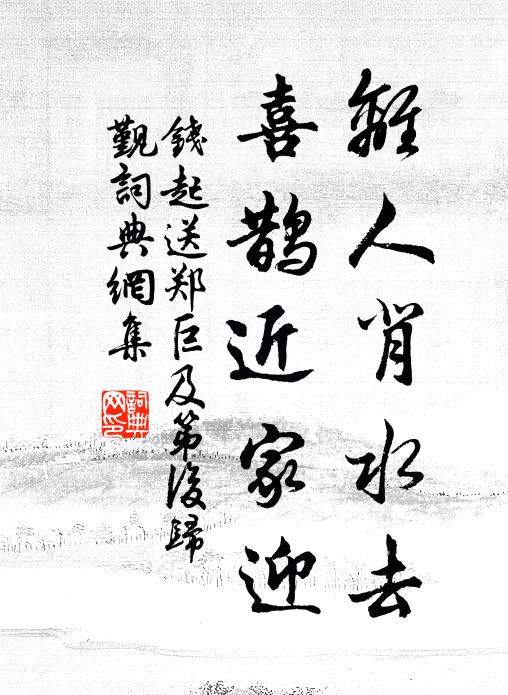 離人背水去
喜鵲近家迎
錢起送郑巨及第後歸
覲詞典網集
詞典
网印